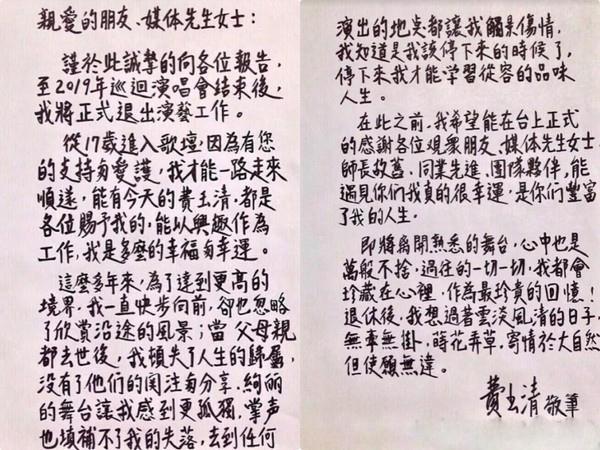 親愛的朋友、媒体先生女士：
謹於此誠摯的向各位報告，
至2019年巡迴演唱會結束後，
我將正式退出演藝工作。
從17歲進入歌壇，因為有您
的支持与愛護，我才能一路走來
順遂，能有今天的費玉清，都是
各位賜予我的，能以興趣作為
工作，我是多麼的幸福与幸運。
這麼多年來，為了達到更高的
境界，我一直快步向前，卻也忽略
了欣賞沿途的風景；當父母親
都去世後，我頓失了人生的歸屬，
沒有了他們的関注与分享，絢麗
的舞台讓我感到更孤獨，掌声
也填補不了我的失落，去到任何
演出的地点都讓我觸景傷情，
我知道是我該停下來的時候了，
停下來我才能学習從容的品味
人生。
在此之前，我希望能在台上正式
的感謝各位观衆朋友、媒体先生女士、
師長故舊、同業先進、团隊夥伴，能
遇見你們我真的很幸運，是你們豐富
了我的人生。
即將離開熟悉的舞台，心中也是
萬般不捨，過往的一切一切，我都會
珍藏在心裡，作為最珍貴的回憶！
退休後，我想過著雲淡風清的日子，
無牽無掛，蒔花弄草，寄情於大自然，
但使願無違。
費玉清 敬筆